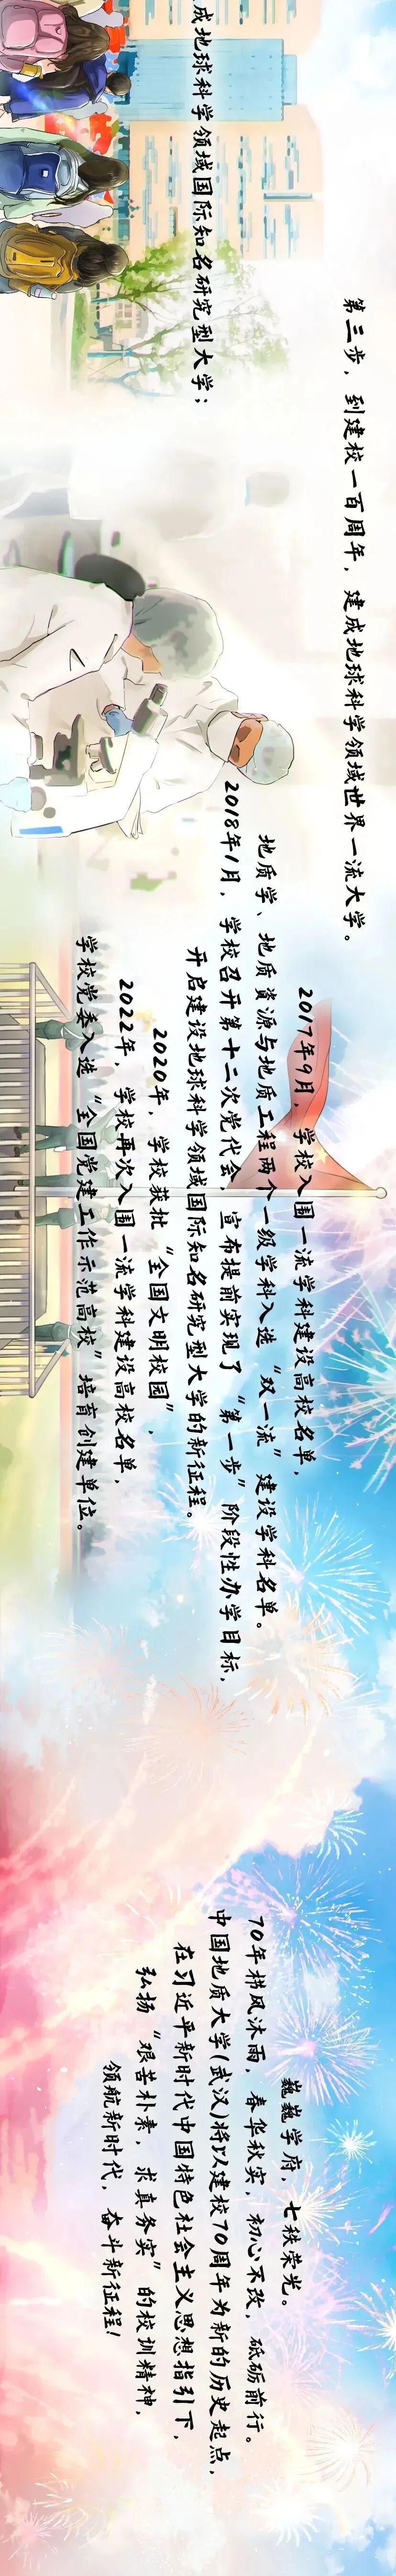 成地球科学领域国际知名研究型大学；
第三步，到建校一百周年，建成地球科学领域世界一流大学。
2017年9月，学校入围一流学科建设高校名单，
地质学、地质资源与地质工程两个一级学科入选“双一流”建设学科名单。
2018年1月，学校召开第十二次党代会，宣布提前实现了“第一步”阶段性办学目标，
开启建设地球科学领域国际知名研究型大学的新征程。
2020年，学校获批“全国文明校园”，
2022年，学校再次入围一流学科建设高校名单，
学校党委入选“全国党建工作示范高校”培育创建单位。
巍巍学府，七秩荣光。
70年栉风沐雨，春华秋实，初心不改，砥砺前行。
中国地质大学(武汉)将以建校70周年为新的历史起点，
在习近平新时代中国特色社会主义思想指引下，
弘扬“艰苦朴素，求真务实”的校训精神，
领航新时代，奋斗新征程！